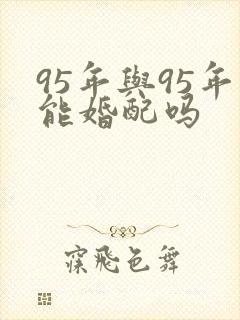 95年與95年
能婚配吗
寐飛色舞